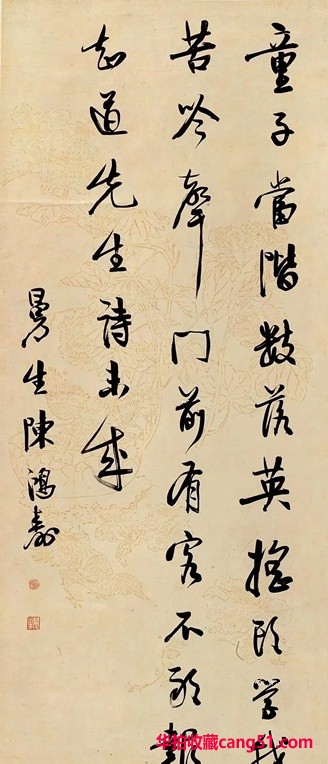 童子當階數落英搖頭學我
苦吟聲門前有客不敢報
知道先生詩未成
曼生陳鴻壽
华拍收藏cang51.com